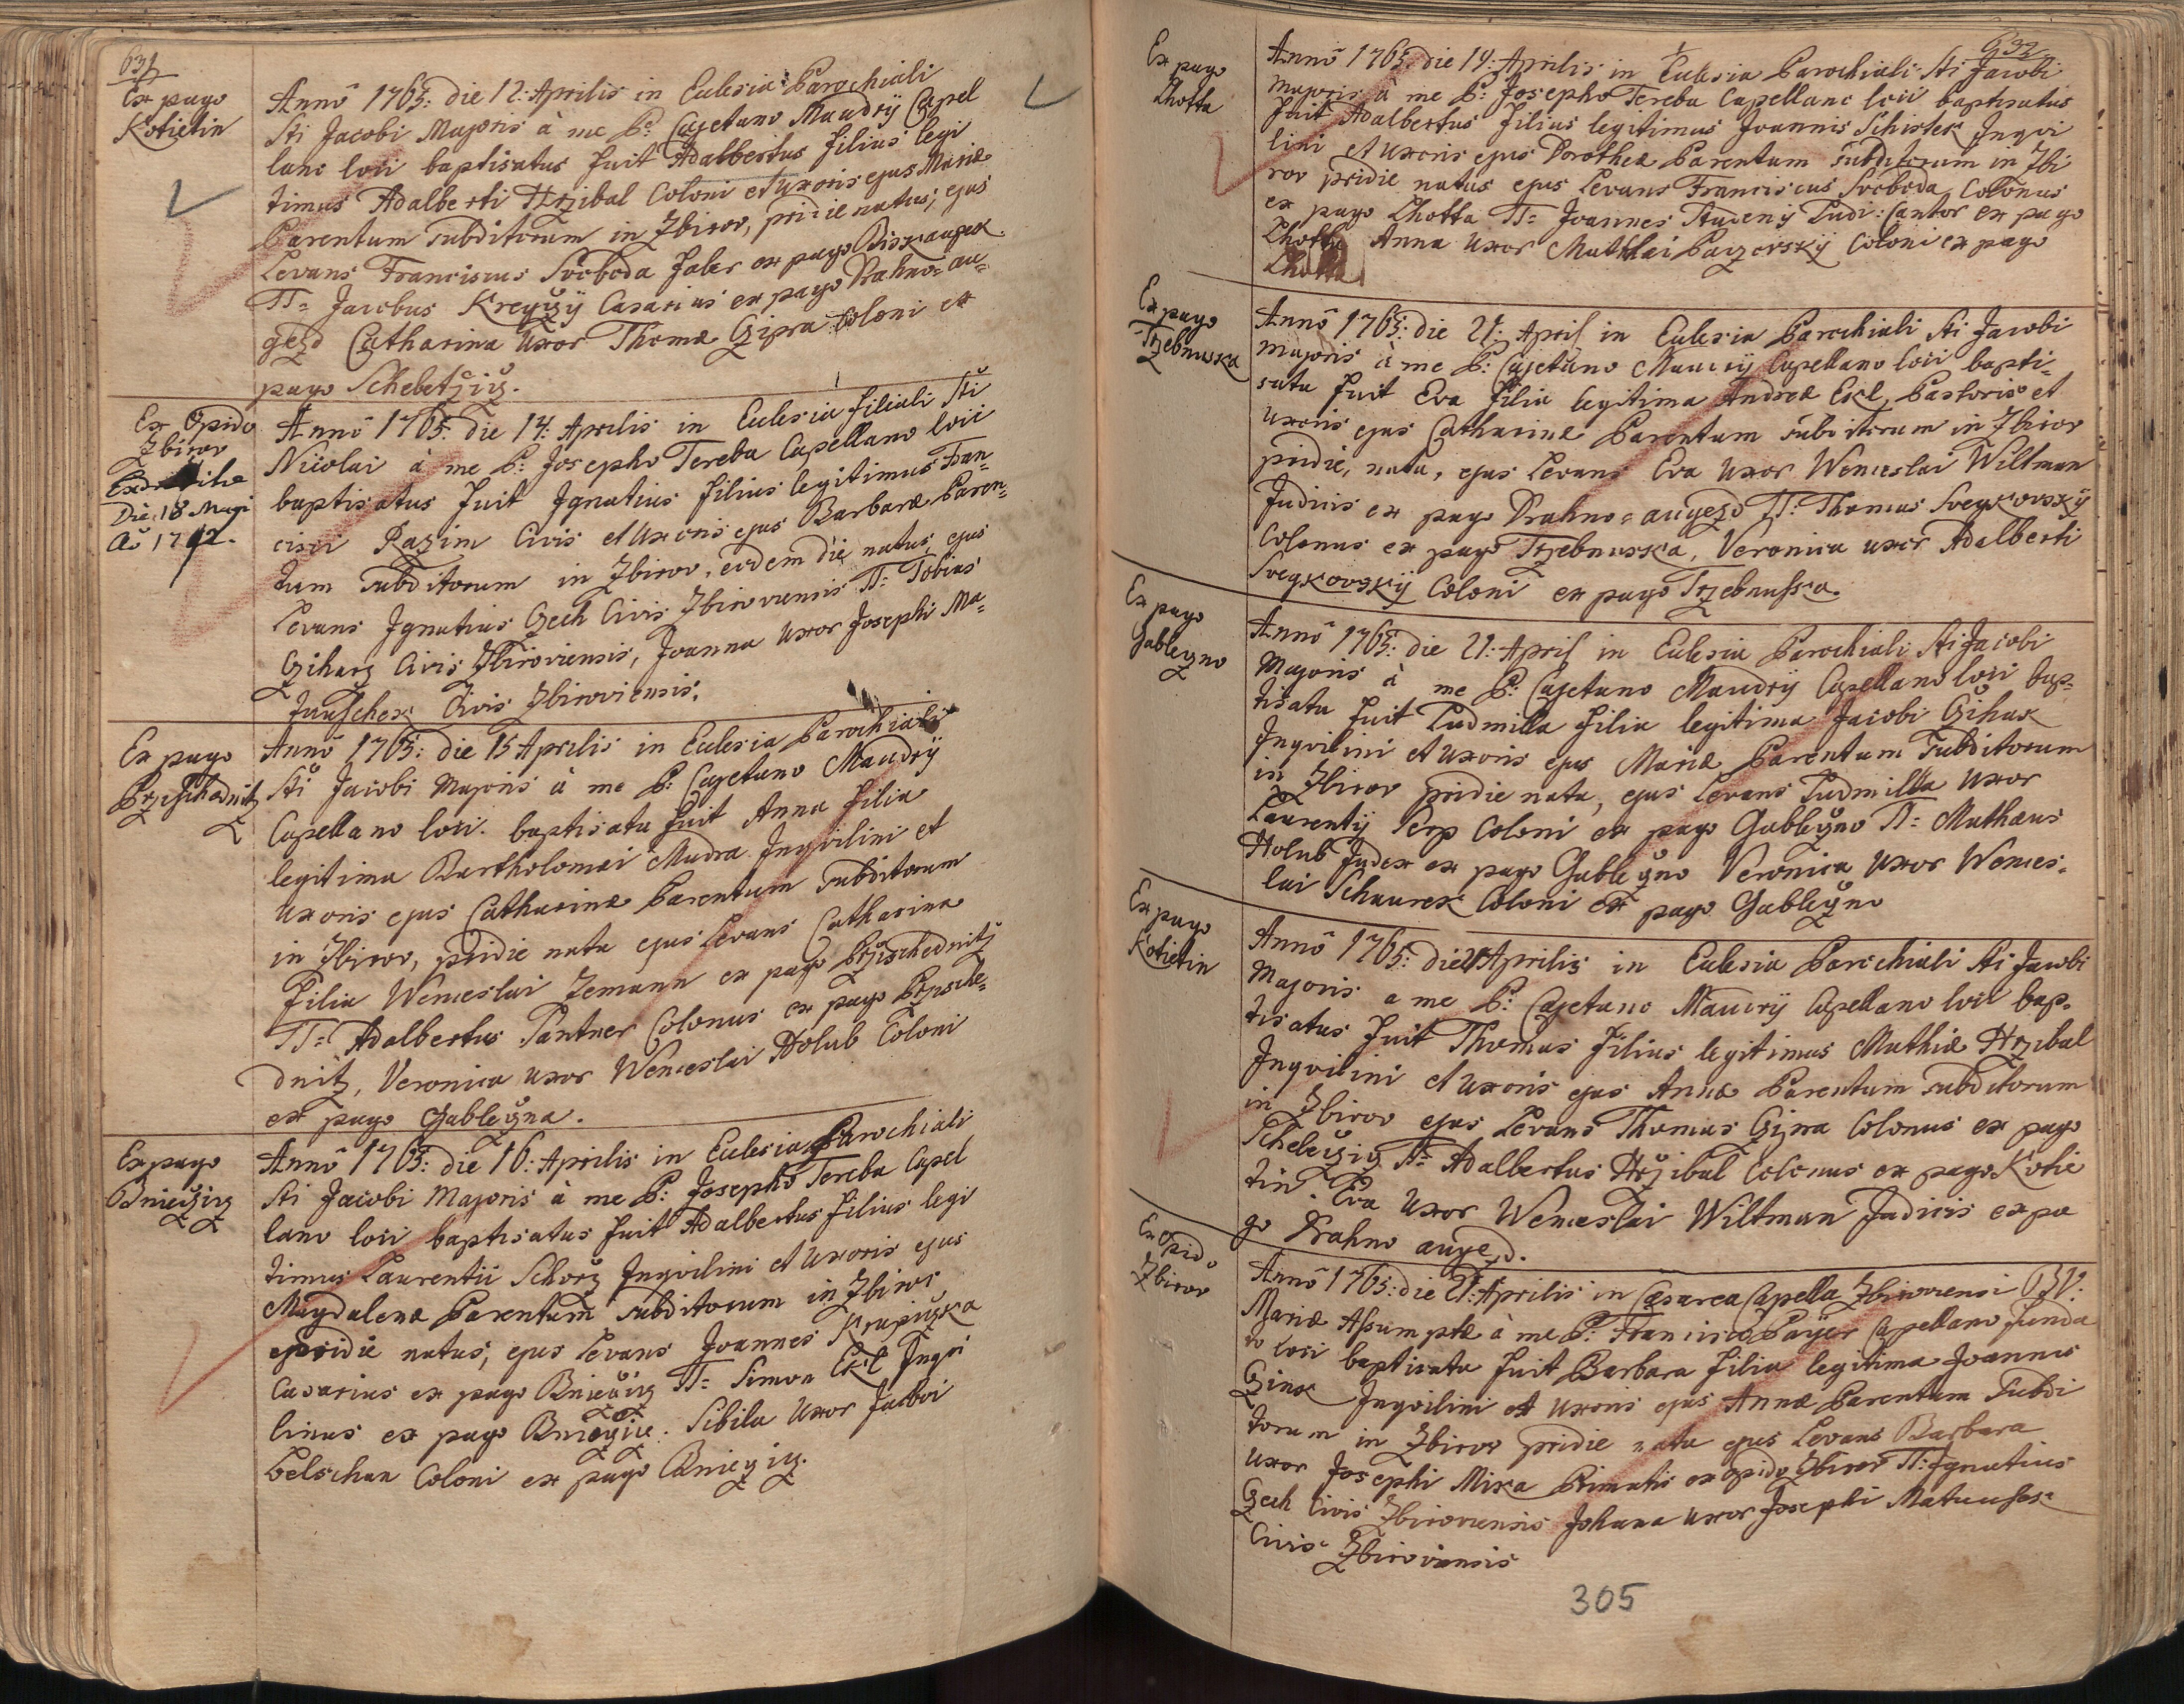 631
Ex pago
Kotietin
Annô 1765: die 12: Aprilis in Eulesia Parochiali
Sti Jacobi Majoris à me P: Cajetano Maudrÿ Capel
lano loci baptisatus fuit Adalbertus filius legi
timus Adalberti Hrzibal Coloni et Uxoris ejus Mariæ
Parentum subditorum in Zbirov, pridie natus, ejus
Levans Franciscus Svoboda faber ex pago Biskaupek.
TT= Jacobus Kreyczÿ Casarius ex pago Drahno= au=
gezd Catharina Uxor Thomæ Czizra Coloni ex
pago Schebetzicz.
Ex Opido
Zbirov
Die 18 Maji
Aō 1792.
Annô 1765: die 14: Aprilis in Eulesia filiali Sti
Nicolai à me P: Josepho Tereba Capellano loci
baptisatus fuit Ignatius filius legitimus Fran=
cisci Razim Civis et Uxoris ejus Barbaræ Paren=
tum subditorum in Zbirov, eodem die natus ejus
Levans Ignatius Czech Civis Zbiroviensis TT= Tobias
Cziharz Civis Zbiroviensis, Joanna Uxor Josephi Ma=
tauschek Civis Zbiroviensis.
Ex pago
Przischednitz
Annô 1765: die 15 Aprilis in Eulesia Parochiali
Sti Jacobi Majoris à me P: Cajetano Maudrÿ
Capellano loci. baptisata fuit Anna filia
legitima Bartholomæi Mudra Inqvilini et
Uxoris ejus Catharinæ Parentum subditorum
in Zbirov, pridie nata ejus Levans Catharina
Filia Wenceslai Zemann ex pago Przischednitz
TT= Adalbertus Pantner Colonus ex pago Przische=
dnitz, Veronica uxor Wenceslai Holub Coloni
ex pago Gableczna.
Ex pago
Bnieczicz
Annô 1765: die 16: Aprilis in Eulesia Parochiali
Sti Jacobi Majoris à me P: Josepho Tereba Capel
lano loci baptisatus fuit Adalbertus filius legi
timus Laurentii Schorz Inqvilini et Uxoris ejus
Magdalenæ Parentum subditorum in Zbirov
pridie natus, ejus Levans Joannes Krupiczka
Casarius ex pago Bnieczicz TT= Simon Ekl Inqvi
linus ex pago Bnieczicz. Sibila Uxor Jacobi
Lelschan Coloni ex pago Bnieczicz.
632
Ex pago
Lhotta
Annô 1765: die 14: Aprilis in Eulesia Parochiali Sti Jacobi
Majoris à me P: Josepho Tereba Capellano loci baptisatus
fuit Adalbertus filius legitimus Joannis Schistek Inqvi
lini et Uxoris ejus Dorotheæ Parentum subditorum in Zbi
rov pridie natus ejus Levans Franciscus Svoboda, Colonus
ex pago Lhotta TT= Joannes Studenÿ Ludi: Cantor ex pago
Lhotta Anna Uxor Mathæi Paczovskÿ Coloni ex pago
Lhotta
Ex pago
Trzebnuska
Annô 1765: die 21: April in Eulesia Parochiali Sti Jacobi
Majoris à me P: Cajetano Maudrÿ Capellano loci bapti=
sata fuit Eva filia legitima Andreæ Ekl, Pastoris et
Uxoris ejus Catharinæ Parentum subditorum in Zbirov
pridie, nata, ejus Levans Eva Uxor Wenceslai Wiltman
Judicis ex pago Drahno= augezd TT= Thomas Sveykovskÿ
Colonus ex pago Trzebnuska, Veronica uxor Adalberti
Sveykovskÿ Coloni ex pago Trzebnusska.
Ex pago
Gableczno
Annô 1765: die 21: April in Eulesia Parochiali Sti Jacobi
Majoris à me P: Cajetano Maudrÿ Capellano loci bap=
tisata fuit Ludmilla filia legitima Jacobi Czihak
Inqvilini et Uxoris ejus Mariæ Parentum subditorum
in Zbirov pridie nata, ejus Levans Ludmilla Uxor
Laurentÿ Serp Coloni ex pago Gableczno TT= Mathæus
Holub Judex ex pago Gableczno Veronica Uxor Wences=
lai Schaurek Coloni ex pago Gableczno
Ex pago
Kotietin
Annô 1765: die 21 Aprilis in Eulesia Parochiali Sti Jacobi
Majoris a me P: Cajetano Maudrÿ Capellano loci bap=
tisatus fuit Thomas filius legitimus Mathiæ Hrzibal
Inqvilini et Uxoris ejus Annæ Parentum subditorum
in Zbirov ejus Levans Thomas Czizra Colonus ex pago
Schebeczicz TT= Adalbertus Hrzibal Colonus ex pago Kotie
tin. Eva Uxor Wenceslai Wiltman Judicis ex pa
go Drahno augezd.
Ex Opido
Zbirov
Annô 1765: die 21: Aprilis in Cæsarea Capella Zbiroviensi BV:
Mariæ Assumptæ à me P: Francisco Payer Capellano funda
to loci baptisata fuit Barbara filia legitima Joannis
Czink Inqvilini et Uxoris ejus Annæ Parentum subdi
torum in Zbirov pridie nata ejus Levans Barbara
Uxor Josephi Mixa Primatis ex opido Zbirov TT: Ignatius
Czech Civis Zbiroviensis Johana uxor Josephi Matauschek
Civis Zbiroviensis
305